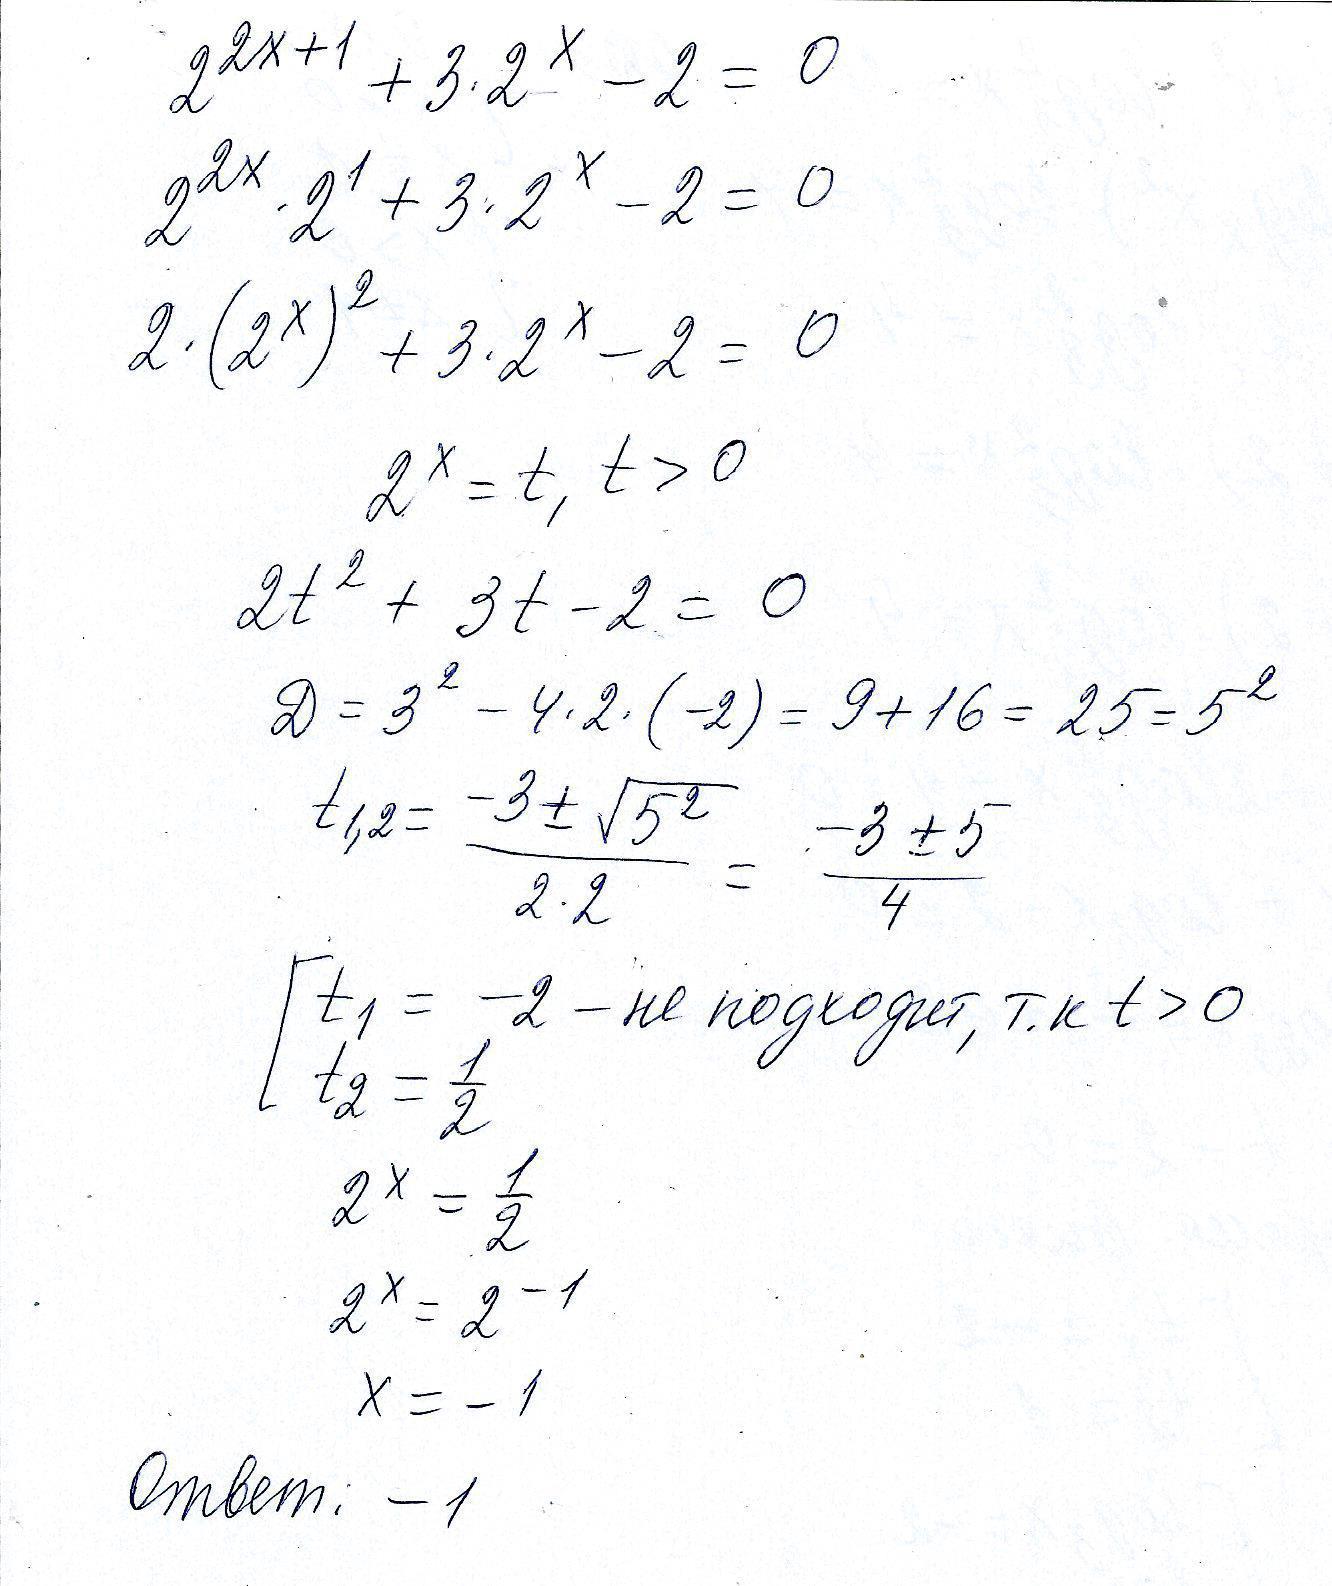 2^{2x+1} + 3·2^x − 2 = 0
2^{2x}·2^1 + 3·2^x − 2 = 0
2·(2^x)^2 + 3·2^x − 2 = 0
2^x = t, t > 0
2t^2 + 3t − 2 = 0
Д = 3^2 − 4·2·(−2) = 9 + 16 = 25 = 5^2
t_{1,2} = \frac{−3 ± √{5^2}}{2·2} = \frac{−3 ± 5}{4}
[ t_1 = −2 – не подходит, т.к t > 0
t_2 = \frac{1}{2}
2^x = \frac{1}{2}
2^x = 2^{−1}
x = −1
Ответ: −1